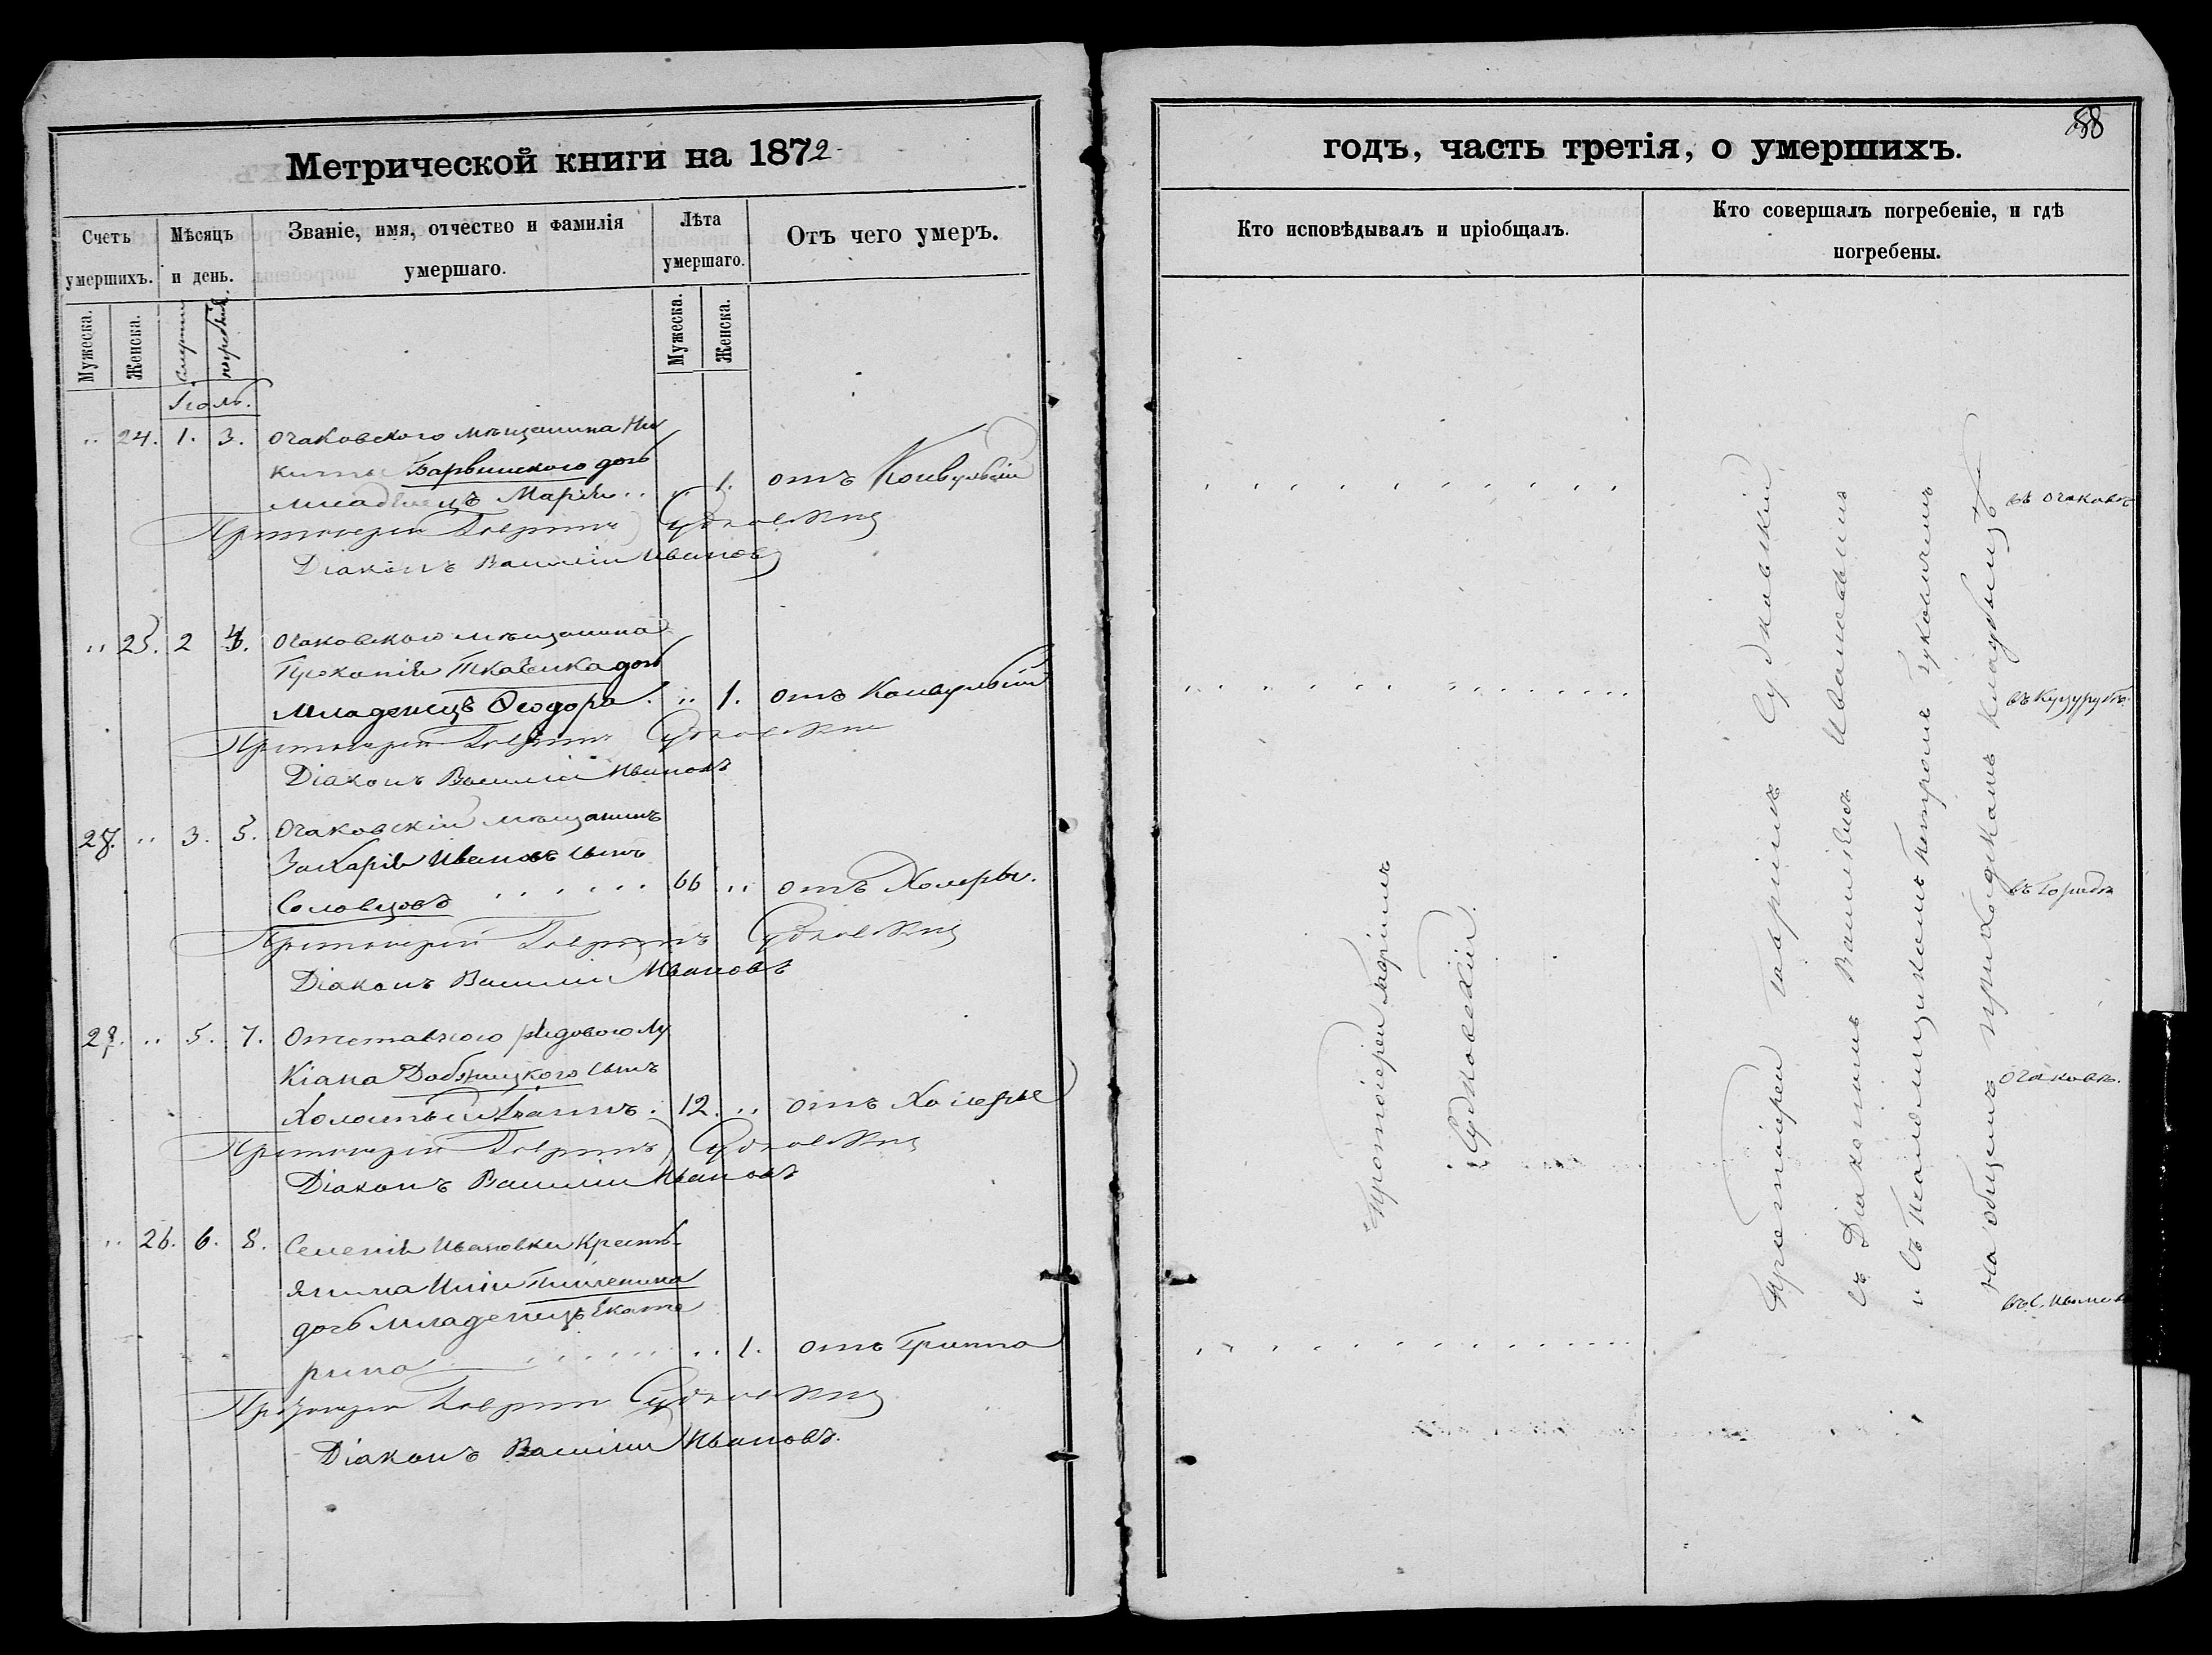 Метрической книги на 1872
Счетъ умершихъ.
Мѣсяцъ и день.
Званіе, имя, отчество и фамилія умершаго.
Лѣта умершаго.
Отъ чего умеръ.
Мужеска.
Женска.
смерти
погребенія.
Мужеска.
Женска.
Іюль.
" 24. 1. 3. Очаковского мѣщанина Ни
киты Барвинского дочь
младенецъ Марія " 1. отъ Конвульсіи
Протоіерей Гавріилъ Судковскій
Діаконъ Василій Ивановъ
" 25. 2 4. Очаковского мѣщанина
Прокопія Ткаченка дочь
Младенецъ Ѳеодора. " 1. отъ Конвульсіи
Протоіерей Гавріилъ Судковскій
Діаконъ Василій Ивановъ
27. " 3. 5. Очаковскій мѣщанинъ
Захарія Ивановъ сынъ
Соловцовъ 66 " отъ Холеры.
Протоіерей Гавріилъ Судковскій
Діаконъ Василій Ивановъ
28. " 5. 7. Отставного рядового Лу
кіана сынъ
Холостый 12. " отъ Холеры
Протоіерей Гавріилъ Судковскій
Діаконъ Василій Ивановъ
" 26. 6. 8. Селенія Ивановки Кресть-
янина
дочь Младенецъ Екате
рина " 1. отъ Гриппа
Протоіерей Гавріилъ Судковскій
Діаконъ Василій Ивановъ.
58
годъ, часть третія, о умершихъ.
Кто исповѣдывалъ и пріобщалъ.
Кто совершалъ погребеніе, и гдѣ
погребены.
Протоіерей Гавріилъ
Судковскій.
Протоіерей Гавріилъ Судковскій
съ Діакономъ Василіемъ Ивановымъ
и съ Псаломщикомъ Петромъ
на общемъ приходскомъ кладбищѣ
въ Очаковѣ
въ Куцурубѣ.
въ Городѣ
Очаковѣ.
въ с. Ивановк